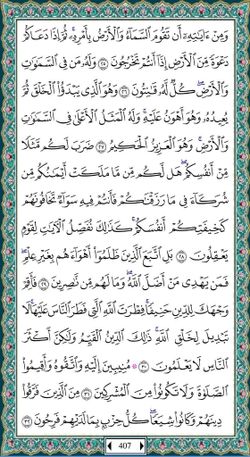 وَمِنْ ءَايَٰتِهِۦٓ أَن تَقُومَ ٱلسَّمَآءُ وَٱلْأَرْضُ بِأَمْرِهِۦ ۚ ثُمَّ إِذَا دَعَاكُمْ
دَعْوَةً مِّنَ ٱلْأَرْضِ إِذَآ أَنتُمْ تَخْرُجُونَ ٢٥ وَلَهُۥ مَن فِى ٱلسَّمَٰوَٰتِ
وَٱلْأَرْضِ ۖ كُلٌّ لَّهُۥ قَٰنِتُونَ ٢٦ وَهُوَ ٱلَّذِى يَبْدَؤُا۟ ٱلْخَلْقَ ثُمَّ
يُعِيدُهُۥ وَهُوَ أَهْوَنُ عَلَيْهِ ۚ وَلَهُ ٱلْمَثَلُ ٱلْأَعْلَىٰ فِى ٱلسَّمَٰوَٰتِ
وَٱلْأَرْضِ ۚ وَهُوَ ٱلْعَزِيزُ ٱلْحَكِيمُ ٢٧ ضَرَبَ لَكُم مَّثَلًا
مِّنْ أَنفُسِكُمْ ۖ هَل لَّكُم مِّن مَّا مَلَكَتْ أَيْمَٰنُكُم مِّن
شُرَكَآءَ فِى مَا رَزَقْنَٰكُمْ فَأَنتُمْ فِيهِ سَوَآءٌ تَخَافُونَهُمْ
كَخِيفَتِكُمْ أَنفُسَكُمْ ۚ كَذَٰلِكَ نُفَصِّلُ ٱلْءَايَٰتِ لِقَوْمٍ
يَعْقِلُونَ ٢٨ بَلِ ٱتَّبَعَ ٱلَّذِينَ ظَلَمُوٓا۟ أَهْوَآءَهُم بِغَيْرِ عِلْمٍ ۖ
فَمَن يَهْدِى مَنْ أَضَلَّ ٱللَّهُ ۖ وَمَا لَهُم مِّن نَّٰصِرِينَ ٢٩ فَأَقِمْ
وَجْهَكَ لِلدِّينِ حَنِيفًا ۚ فِطْرَتَ ٱللَّهِ ٱلَّتِى فَطَرَ ٱلنَّاسَ عَلَيْهَا ۚ لَا
تَبْدِيلَ لِخَلْقِ ٱللَّهِ ۚ ذَٰلِكَ ٱلدِّينُ ٱلْقَيِّمُ وَلَٰكِنَّ أَكْثَرَ
ٱلنَّاسِ لَا يَعْلَمُونَ ٣٠ مُنِيبِينَ إِلَيْهِ وَٱتَّقُوهُ وَأَقِيمُوا۟
ٱلصَّلَوٰةَ وَلَا تَكُونُوا۟ مِنَ ٱلْمُشْرِكِينَ ٣١ مِنَ ٱلَّذِينَ فَرَّقُوا۟
دِينَهُمْ وَكَانُوا۟ شِيَعًا ۖ كُلُّ حِزْبٍۭ بِمَا لَدَيْهِمْ فَرِحُونَ ٣٢
407